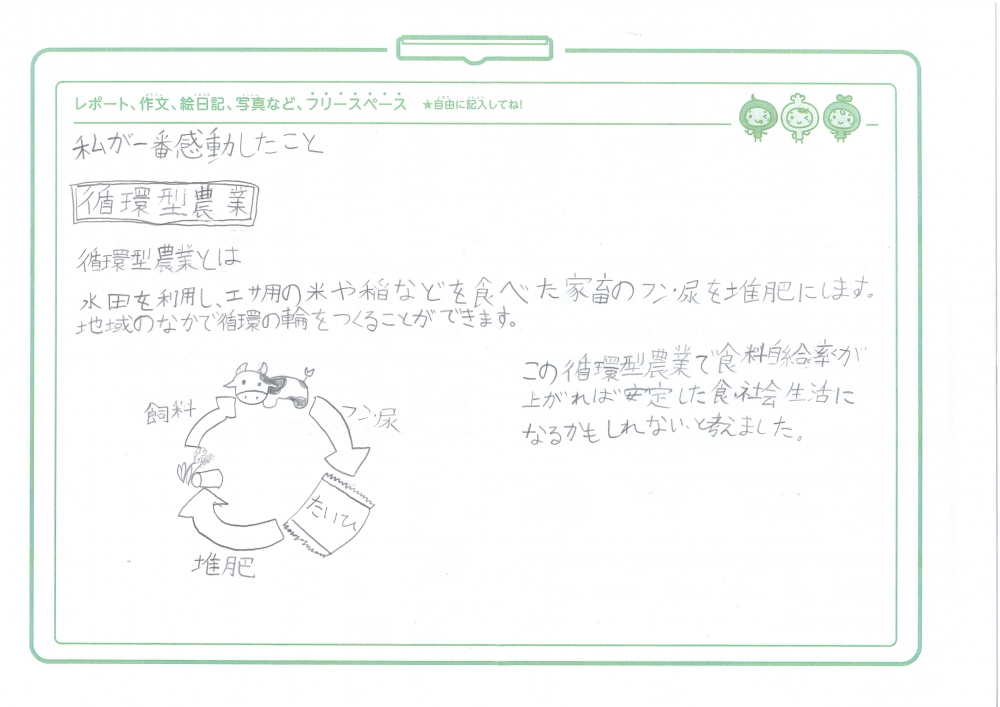 レポート、作文、絵日記、写真など、フリースペース ★自由に記入してね!
私が一番感動したこと
循環型農業
循環型農業とは
水田を利用し、エサ用の米や稲などを食べた家畜のフン・尿を堆肥にします。
地域のなかで循環の輪をつくることができます。
飼料
フン・尿
たいひ
堆肥
この循環型農業で食料自給率が
上がれば安定した食・社会生活に
なるかもしれないと考えました。